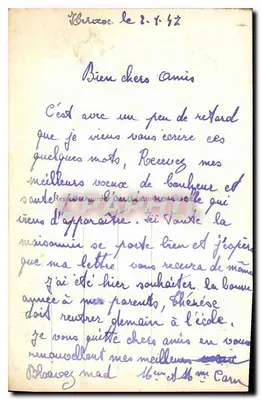 le 2-1-47
Bien chers Amis
C'est avec un peu de retard
que je viens vous écrire ces
quelques mots, Recevez mes
meilleurs voeux de bonheur et
santé pour l'année nouvelle qui
viens d'apparaitre. Ici toute la
maisonnée se porte bien et j'espère
que ma lettre vous recevra de même
J'ai été hier souhaiter la bonne
année à mes parents, Thérèse
doit rentrer demain à l'école.
Je vous quitte chers amis en vous
renouvellant mes meilleurs
Bloavez mad Mr et Mme